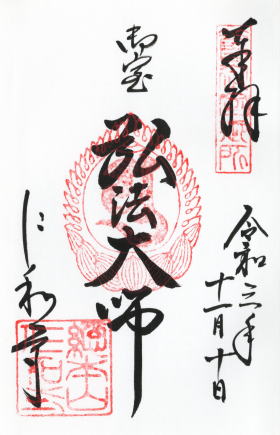 奉拝
令和三年
十一月十日
御室
弘法大師
仁和寺
総本山
仁和寺